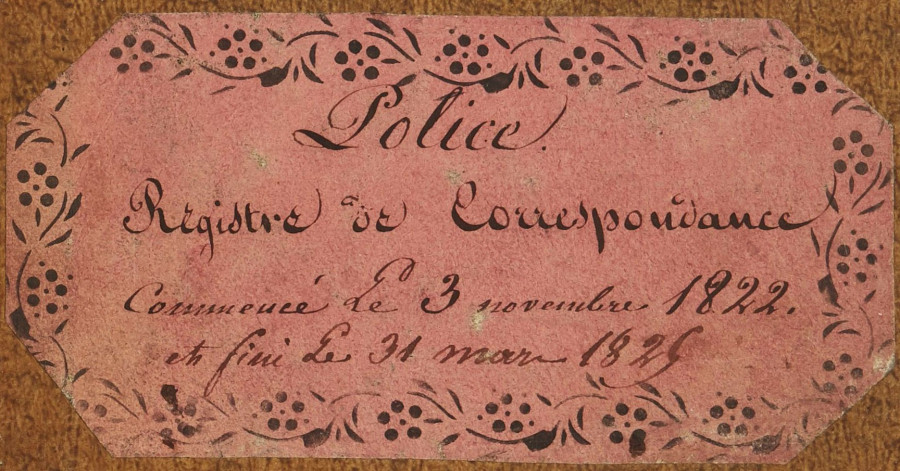 Police.
Registre de Correspondance
Commencé Le 3 novembre 1822.
et fini Le 31 mars 1825